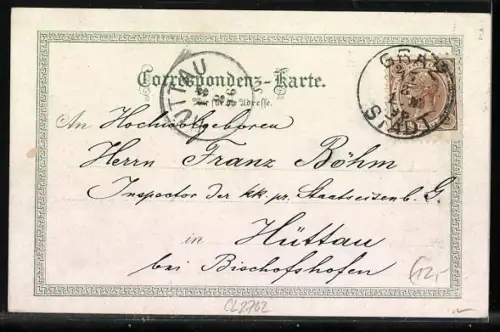 GRAZ
STADT
HÜTTAU
Correspondenz-Karte.
Nur für die Adresse.
An Hochwolgeboren
Herrn Franz Böhm
Inspector der kk. pr. Staatseisenb. G.
in
Hüttau
bei Bischofshofen
12,-
CL2762